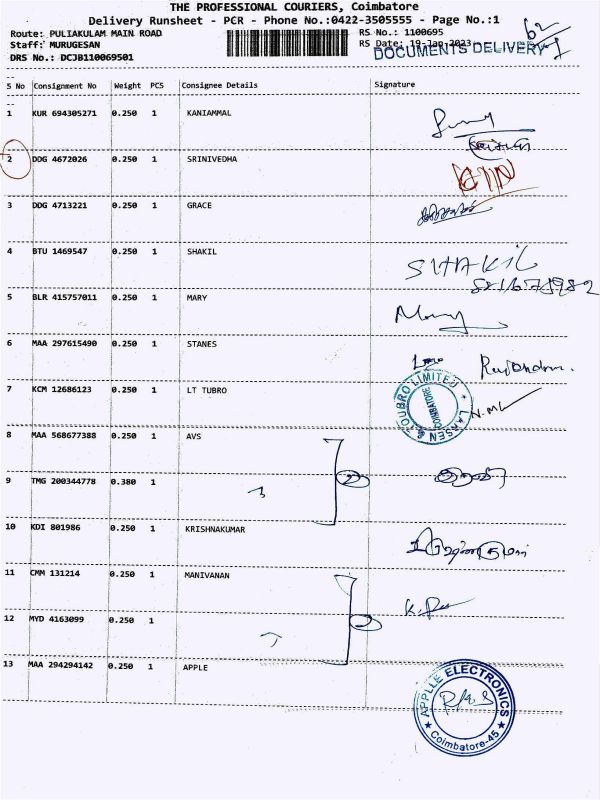 THE PROFESSIONAL COURIERS, Coimbatore
Delivery Runsheet - PCR - Phone No.:0422-3505555 - Page No.:1
Route: PULIAKULAM MAIN ROAD
Staff: MURUGESAN
DRS No.: DCJB110069501
RS No.: 1100695
RS Date: 19-Jan-2023
62
DOCUMENTS DELIVERY
S No Consignment No Weight PCS Consignee Details Signature
1 KUR 694305271 0.250 1 KANIAMMAL
2 DDG 4672026 0.250 1 SRINIVEDHA
3 DDG 4713221 0.250 1 GRACE
4 BTU 1469547 0.250 1 SHAKIL SHAKIL
5 BLR 415757011 0.250 1 MARY Mary
6 MAA 297615490 0.250 1 STANES
7 KCM 12686123 0.250 1 LT TUBRO
LARSEN & TOUBRO LIMITED
COIMBATORE
8 MAA 568677388 0.250 1 AVS
9 TMG 200344778 0.380 1
10 KDI 801986 0.250 1 KRISHNAKUMAR
11 CMM 131214 0.250 1 MANIVANAN
12 MYD 4163099 0.250 1
13 MAA 294294142 0.250 1 APPLE
APPLLE ELECTRONICS
Coimbatore-45